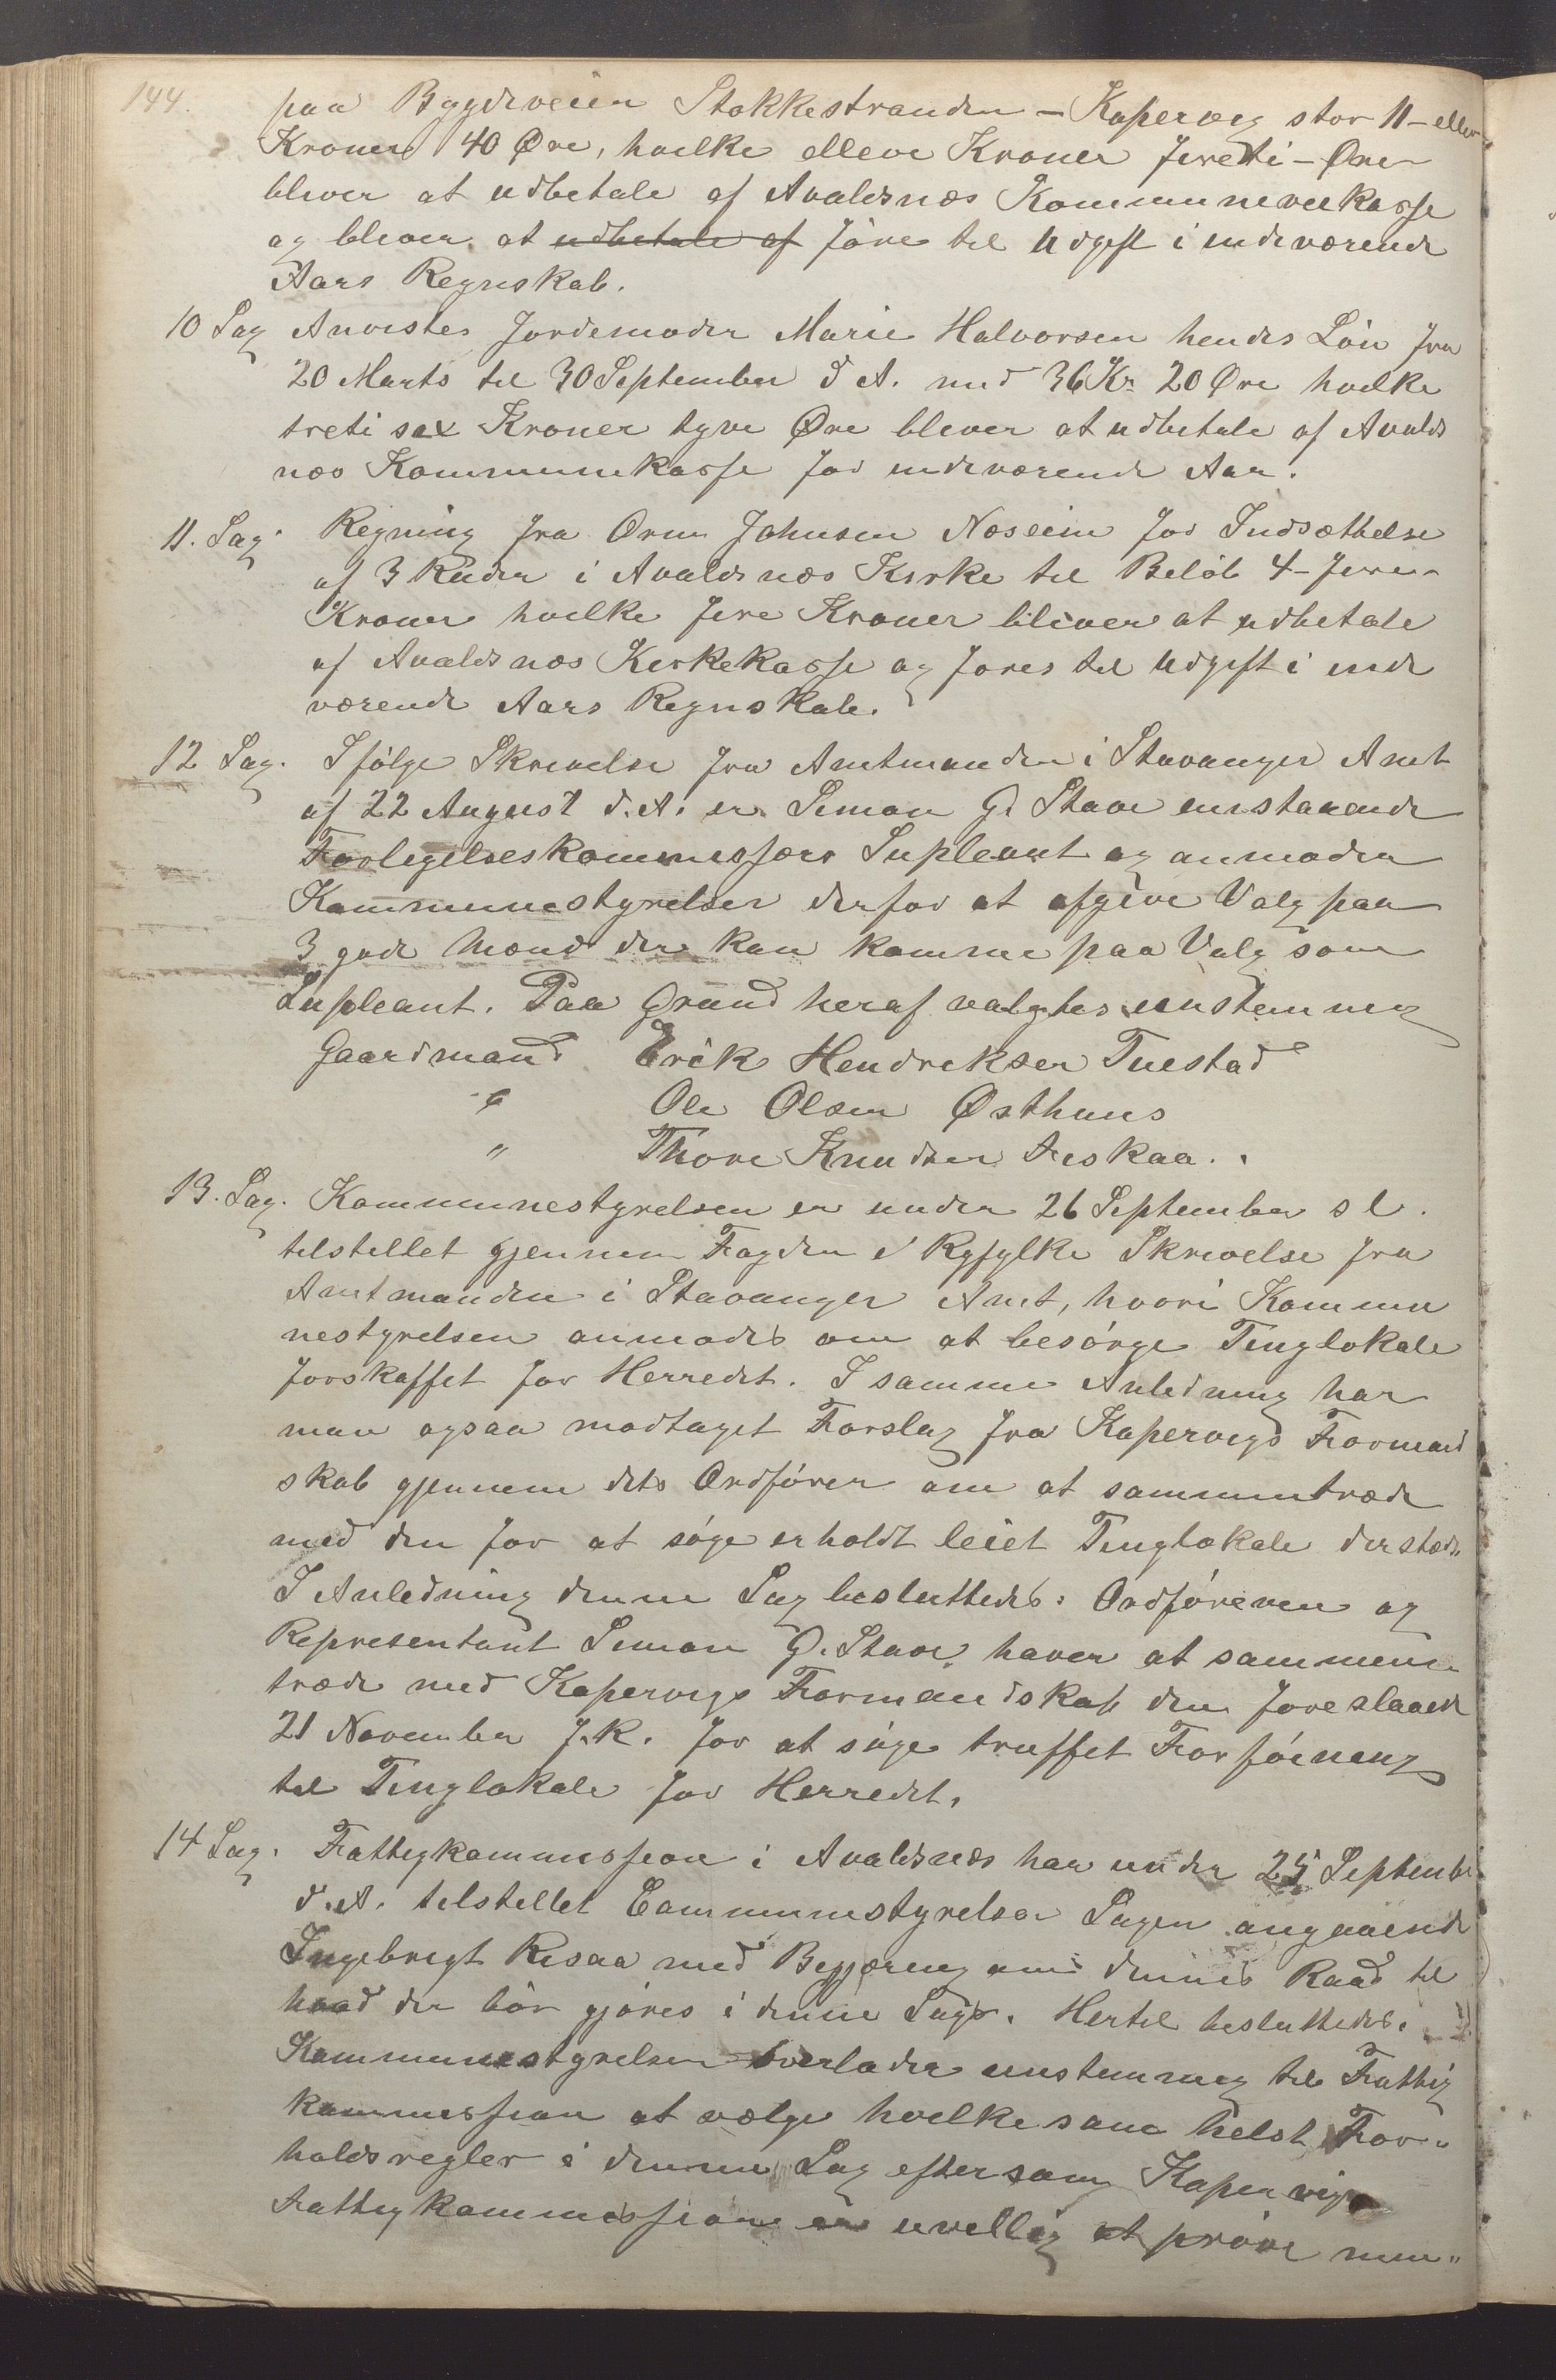 144.
paa Bygdeveien Stokkestranden - Kopervig stor 11 - elleve
Kroner 40 Øre, hvilke elleve Kroner fireti - Øre
bliver at udbetale af Avaldsnæs Kommuneveikasse
og bliver at udbetale af före til Udgift i indeværende
Aars Regnskab.
10 Sag Anvistes Jordemoder Marie Halvorsen hendes Lön fra
20 Marts til 30 September d A. med 36 Kr 20 Øre hvilke
treti sex Kroner tyve Øre bliver at udbetale af Avalds
næs Kommunekasse for indeværende Aar.
11. Sag. Regning fra Orm Johnsen Nøseim for Indsættelse
af 3 Ruder i Avaldsnæs Kirke til Belöb 4 - fire -
Kroner hvilke fire Kroner bliver at udbetale
af Avaldsnæs Kirkekasse og föres til Udgift i inde
værende Aars Regnskab.
12 Sag. Ifölge Skrivelse fra Amtmanden i Stavanger Amt
af 22 August d. A. er Simon G. Stave enstaaende
Forligelseskommissærs Supleant og anmoder
Kommunestyrelsen derfor at afgive Valg paa
3 gode Mænd der kan komme paa Valg som
Supleant. Paa Grund heraf valgtes enstemmig
Gaardmand Erik Hendriksen Tuestad
" Ole Olsen Østhuus
" Thore Knudsen Fiskaa.
13. Sag. Kommunestyrelsen er under 26 September s l.
tilstillet gjennem Fogden i Ryfylke Skrivelse fra
Amtmanden i Stavanger Amt, hvori Kommu
nestyrelsen anmodes om at besörge Tinglokale
forskaffet for Herredet. I samme Anledning har
man ogsaa modtaget Forslag fra Kopervigs Formand
skab gjennem dets Ordförer om at sammentræde
med den for at söge erholdt leiet Tinglokale dersteds.
I Anledning denne Sag besluttedes: Ordföreren og
Representant Simon G. Stave haver at sammen
træde med Kopervigs Formandskab den foreslaaede
21 November f. k. for at söge truffet Forföining
til Tinglokale for Herredet.
14 Sag. Fattigkommission i Avaldsnæs har under 25 Septembe
d. A. tilstillet Communestyrelsen Sagen angaaende
Ingebrigt Risaa med Begjæring om dennes Raad til
hvad der bör gjöres i denne Sag. Hertil besluttedes.
Kommunestyrelsen overlader enstemmig til Fattig
kommission at vælge hvilke som helst For-
holdsregler i denne Sag eftersom Kopervigs
Fattigkommission er uvillig at pröve min"